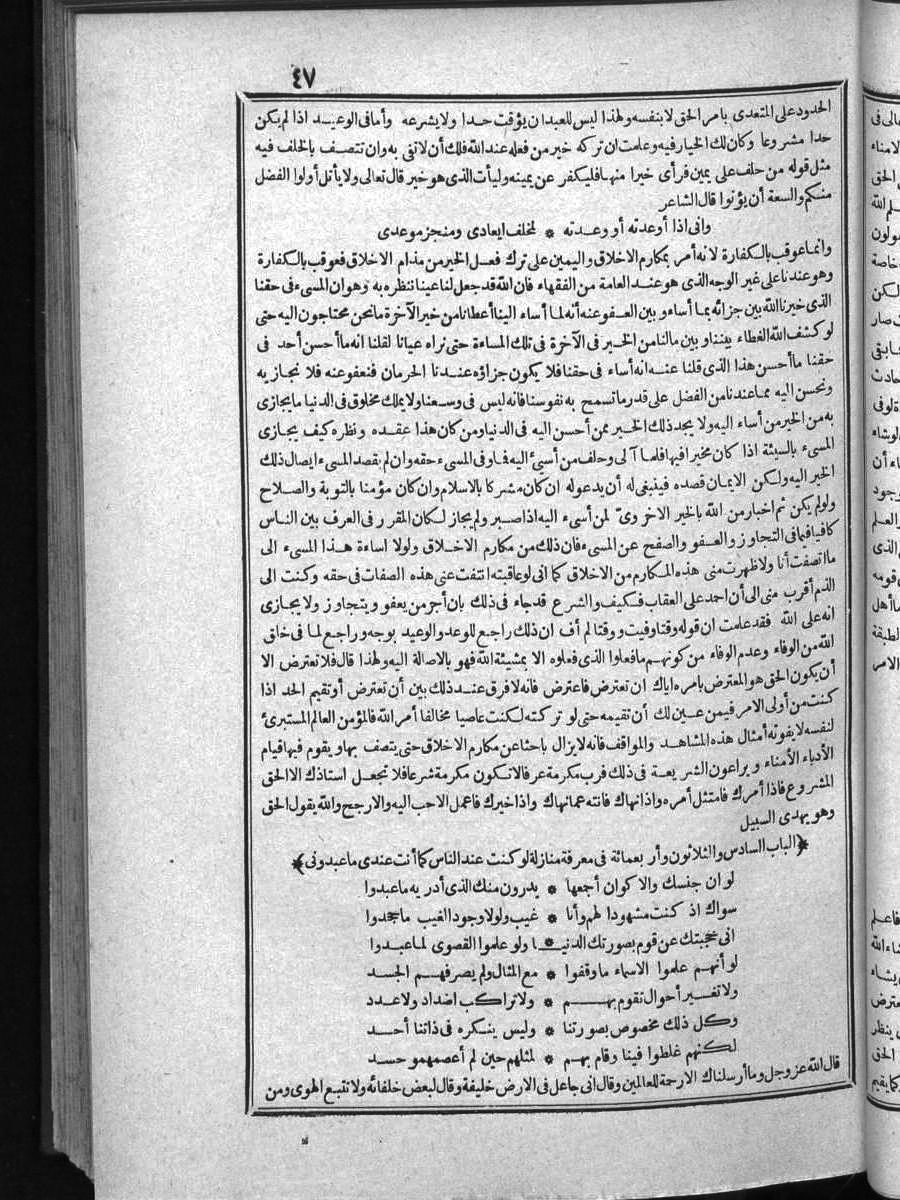 ٤٧
الحدود على المتعدى بامر الحق لا بنفسه ولهذا ليس للعبد ان يؤقت حدا ولا يشرعه وأما فى الوعيد اذا لم يكن
حدا مشروعا وكان لك الخيار فيه وعلمت ان تركه خير من فعله عند الله فلك أن لا تفى به وان تتصف بالخلف فيه
مثل قوله من حلف على يمين فرأى خيرا منها فليكفر عن يمينه وليأت الذى هو خير قال تعالى ولا يأتل أولوا الفضل
منكم والسعة أن يؤتوا قال الشاعر
وانى اذا أوعدته أو وعدته * لمخلف ايعادى ومنجز موعدى
وانما عوقب بالكفارة لانه أمر بمكارم الاخلاق واليمين على ترك فعل الخير من مذام الاخلاق فعوقب بالكفارة
وهو عندنا على غير الوجه الذى هو عند العامة من الفقهاء فان الله قد جعل لنا عينا ننظره به وهو ان المسىء فى حقنا
الذى خيرنا الله بين جزائه بما أساء وبين العفو عنه أنه لما أساء الينا أعطانا من خير الآخرة ما نحن محتاجون اليه حتى
لو كشف الله الغطاء بيننا وبين مالنا من الخير فى الآخرة فى تلك المساءة حتى نراه عيانا لقلنا انه ما أحسن أحد فى
حقنا ما أحسن هذا الذى قلنا عنه انه أساء فى حقنا فلا يكون جزاؤه عندنا الحرمان فنعفو عنه فلا نجازيه
ونحسن اليه مما عندنا من الفضل على قدر ما تسمح به نفوسنا فانه ليس فى وسعنا ولا يملك مخلوق فى الدنيا ما يجازى
به من الخير من أساء اليه ولا يجد ذلك الخير ممن أحسن اليه فى الدنيا ومن كان هذا عقده ونظره كيف يجازى
المسىء بالسيئة اذا كان مخيرا فيها فلما آلى وحلف من أسىء اليه فما وفى المسىء حقه وان لم يقصد المسىء ايصال ذلك
الخير اليه ولكن الايمان قصده فينبغى له أن يدعو له ان كان مشركا بالاسلام وان كان مؤمنا بالتوبة والصلاح
ولو لم يكن ثم اخبار من الله بالخير الاخروىّ لمن أسىء اليه اذا صبر ولم يجاز لكان المقرر فى العرف بين الناس
كافيا فيما فى التجاوز والعفو والصفح عن المسىء فان ذلك من مكارم الاخلاق ولولا اساءة هذا المسىء الى
ما اتصفت أنا ولا ظهرت منى هذه المكارم من الاخلاق كما انى لو عاقبته انتفت عنى هذه الصفات فى حقه وكنت الى
الذم أقرب منى الى أن احمد على العقاب فكيف والشرع قد جاء فى ذلك بان أجر من يعفو ويتجاوز ولا يجازى
انه على الله فقد علمت ان قوله وقتا وفيت ووقتا لم أف ان ذلك راجع للوعد والوعيد بوجه وراجع لما فى خلق
الله من الوفاء وعدم الوفاء من كونهم ما فعلوا الذى فعلوه الا بمشيئة الله فهو بالاصالة اليه ولهذا قال فلا تعترض الا
أن يكون الحق هو المعترض بامره اياك ان تعترض فاعترض فانه لا فرق عند ذلك بين أن تعترض أو تقيم الحد اذا
كنت من أولى الامر فيمن عين لك أن تقيمه حتى لو تركته لكنت عاصيا مخالفا أمر الله فالمؤمن العالم المستبرئ
لنفسه لا يفوته أمثال هذه المشاهد والمواقف فانه لا يزال باحثا عن مكارم الاخلاق حتى يتصف بها ويقوم فيها قيام
الأدباء الأمناء ويراعون الشريعة فى ذلك فرب مكرمة عرفا لا تكون مكرمة شرعا فلا تجعل استاذك الا الحق
المشروع فاذا أمرك فامتثل أمره واذا نهاك فانته عما نهاك واذا خيرك فاعمل الاحب اليه والارجح والله يقول الحق
وهو يهدى السبيل
﴿الباب السادس والثلاثون وأربعمائة فى معرفة منازلة لو كنت عند الناس كما أنت عندى ما عبدونى﴾
لو ان جنسك والاكوان أجمعها * يدرون منك الذى أدريه ما عبدوا
سواك اذ كنت مشهودا لهم وأنا * غيب ولولا وجود الغيب ما جحدوا
انى حجبتك عن قوم بصورتك الدنيا * ولو علموا القصوى لما عبدوا
لو أنهم علموا الاسماء ما وقفوا * مع المثال ولم يصرفهم الجسد
ولا تغير أحوال تقوم بهم * ولا تراكب اضداد ولا عدد
وكل ذلك مخصوص بصورتنا * وليس ينكره فى ذاتنا أحد
لكنهم غلطوا فينا وقام بهم * لمثلهم حين لم أعصمهمو حسد
قال الله عز وجل وما أرسلناك الا رحمة للعالمين وقال انى جاعل فى الارض خليفة وقال لبعض خلفائه ولا تتبع الهوى ومن